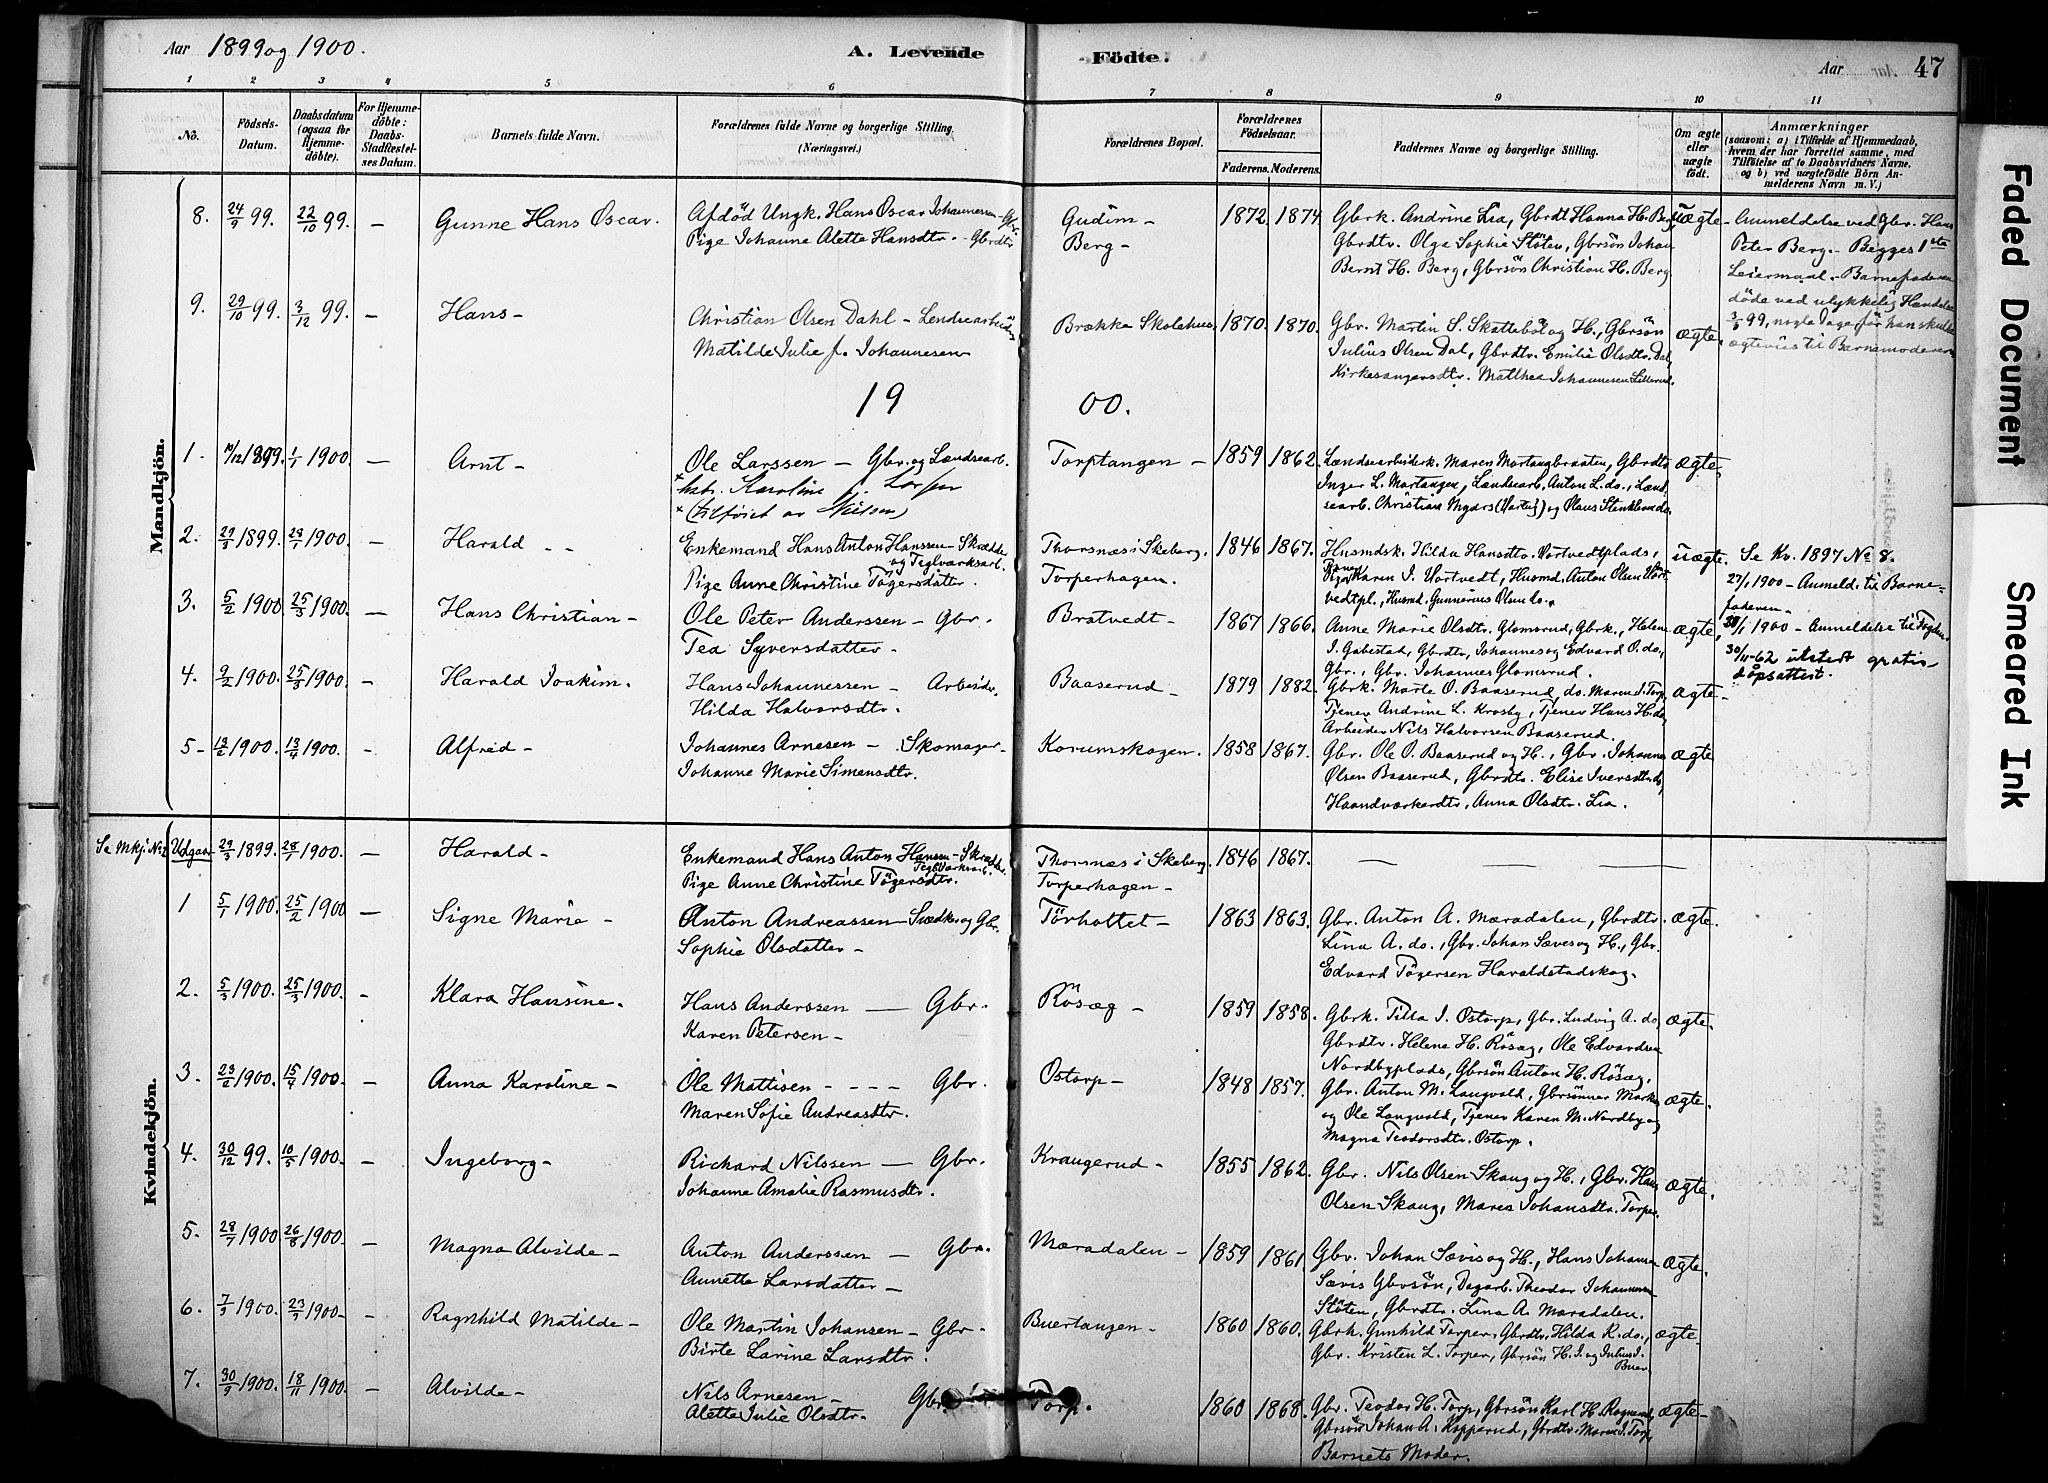 Aar 1899 og 1900.
A. Levende Födte.
Aar 47
1 2 3 4 5 6 7 8 9 10 11
No.
Födsels-Datum.
Daabsdatum (ogsaa for Hjemmedöbte).
For Hjemmedöbte: Daabs-Stadfæstelses Datum.
Barnets fulde Navn.
Forældrenes fulde Navne og borgerlige Stilling.
(Næringsvei.)
Forældrenes Bopæl.
Forældrenes Födselsaar.
Faderens. Moderens.
Faddernes Navne og borgerlige Stilling.
Om ægte eller uægte födt.
Anmærkninger
(saasom: a) i Tilfælde af Hjemmedaab,
hvem der har forrettet samme, med
Tilföielse af to Daabsvidners Navne,
og b) ved uægtefödte Börn Anmelderens Navn m. V.)
Mandkjön.
8. 24/9 99. 22/10 99. – Gunne Hans Oscar. Afdöd Ungk. Hans Oscar Johannessen – Gbr. Gudim – 1872. 1874 Gbrk. Andrine Lia, Gbrdt Hanna H. Berg, uægte – Anmeldelse ved Gbr. Hans
Pige Johanne Alette Hansdtr. – Gbrdtr Berg – Gbrdtr. Olga Sophie Stöten, Gbrsön Johan Peter Berg. – Begges 1ste
Bernt H. Berg, Gbrsön Christian H. Berg Leiermaal. – Barnefaderen
9. 29/10 99. 3/12 99. – Hans – Christian Olsen Dahl – Lendsearbeider Brække Skolehus. 1870. 1870. Gbr. Martin S. Skatteböl og H., Gbrsön ægte. döde ved ulykkelig Hændelse
Matilde Julie f. Johannesen Julius Olsen Dal, Gbrdtr. Emilie Olsdtr. Dal, 3/9 99, nogle Dage før han skulde
Kirkesangersdtr. Matthea Johannesen Lillerud. ægtevies til Barnemoderen
19 00.
1. 11/12 1899. 1/1 1900. – Arnt – Ole Larssen – Gbr. og Lændsearb. Torptangen – 1859 1862. Lændsearbeiderk. Maren Mortangbraaten, Gbrdtr ægte.
+ hstr. Karoline f. Larsen Inger L. Mortangen, Lændsearb. Anton L. do., Lænd
+ (tilföiet av Nilsen) searb. Christian og Olaus Stenklev do.
2. 29/3 1899. 28/1 1900. – Harald – – Enkemand Hans Anton Hanssen – Skrædder og Teglværksarb. Thorsnæs i Skeberg. 1846 1867. Husmdsk. Hilda Hansdtr. Hortvedtplads, uægte. Se Kv. 1897 No 8.
Pige Anne Christine Tögersdatter. Torperhagen. Pige Karen I. Hortvedt, Husmd. Anton Olsen Hort 27/1 1900 – Anmeld. til Barne-
vedtpl., Husmd. Gunnerius Olsen do. faderen –
3. 5/2 1900. 25/3 1900. – Hans Christian – Ole Peter Anderssen – Gbr. Bratvedt – 1867 1866. Anne Marie Olsdtr. Glomsrud, Gbrk., Helene ægte, 30/1 1900 – Anmeldelse til Fogden.
Tea Syversdatter – I. Gabestad, Gbrdtr, Johannes og Edvard O. do., 30/11-62 utstedt gratis-
Gbr., Gbr. Johannes Glomsrud. dåpsattest.
4. 9/2 1900. 25/3 1900. – Harald Joakim. Hans Johannessen – Arbeider Baaserud – 1879 1882. Gbrk. Marte O. Baaserud, do. Maren I. Torp, ægte –
Hilda Halvorsdtr. Tjener Andrine L. Krosby, Tjener Hans H. do.
Arbeider Nils Halvorsen Baaserud.
5 – 13/2 1900. 13/4 1900. – Alfred – Johannes Arnesen – Skomager – Korumskogen. 1858 1867. Gbr. Ole O. Baaserud og H., Gbr. Johannes ægte
Johanne Marie Simensdtr. Olsen Baaserud, Gbrdtr. Elise Iversdtr. do,
Haandværkerdtr, Anna Olsdtr. Lia.
Kvindekjön.
Se Mkj. No 2 Udgaar 29/3 1899. 28/1 1900. – Harald – Enkemand Hans Anton Hanssen – Skrædder. Teglværksarb. Thorsnæs i Skeberg. 1846 1867. — — —
Pige Anne Christine Tögersdtr. Torperhagen –
1 5/1 1900. 25/2 1900 – Signe Marie – Anton Andreassen – Snedker og Gbr. Törholtet – 1863 1863. Gbr. Anton A. Mæradalen, Gbrdtr. ægte.
Sophie Olsdatter – Lina A. do., Gbr. Johan Sæves og H., Gbr.
Edvard Tögersen Haraldstadskog.
2. 5/3 1900. 25/3 1900. – Klara Hansine. Hans Anderssen — Gbr. Rösæg – 1859 1858. Gbrk. Tilla I. Ostorp, Gbr. Ludvig A. do, ægte.
Karen Petersen – Gbrdtr. Helene H. Rösæg, Ole Edvardsen
Nordbyplads, Gbrsön Anton H. Rösæg.
3. 23/2 1900. 15/4 1900. – Anna Karoline – Ole Mattisen – – – – Gbr. Ostorp – 1848 1857. Gbr. Anton M. Langvold, Gbrsönner Markus ægte.
Maren Sofie Andreasdtr. og Ole Langvold, Tjener Karen M. Nordby og
Magna Teodorsdtr. Ostorp.
4. 30/12 99. 10/5 1900. – Ingeborg – Richard Nilssen — Gbr. Kraugerud – 1855 1862. Gbr. Nils Olsen Skaug og H., Gbr. Hans ægte.
Johanne Amalie Rasmusdtr. Olsen Skaug, Maren Johansdtr. Torper.
5. 28/7 1900. 26/8 1900. – Magna Alvilde – Anton Anderssen – Gbr. Mæradalen – 1859 1861. Gbr. Johan Sævis og H., Hans Johansen ægte.
Annette Larsdatter – Sævis Gbrsön, Dagarb. Theodor Johannesen
Stöten, Gbrdtr. Lina A. Mæradalen.
6. 7/9 1900. 23/9 1900. – Ragnhild Matilde – Ole Martin Johansen – Gbr. Buertangen – 1860 1860. Gbrk. Gunhild Torper. Gbrdtr. Hilda K. do., ægte –
Birte Larine Larsdtr. Gbr. Kristen L. Torper, Gbrsön H. I. og Julius I.
Buer
7. 30/9 1900. 18/11 1900. – Alvilde – Nils Arnesen – Gbr. Torp. 1860 1868. Gbr. Teodor H. Torp, Gbrsön Karl H. Rognerud, ægte –
Alette Julie Olsdtr. Gbrsön Johan A. Kopperud, Gbrdtr. Maren I. Torp,
Barnets Moder.
Faded Document
Smeared Ink